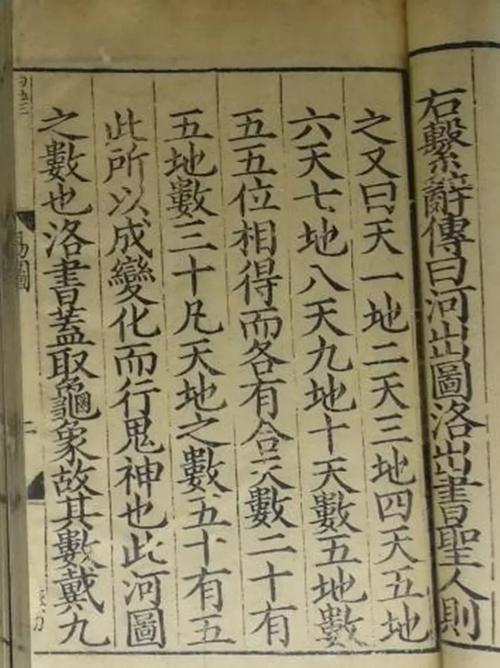 右繫辭傳曰河出圖洛出書聖人則
之又曰天一地二天三地四天五地
六天七地八天九地十天數五地數
五五位相得而各有合天數二十有
五地數三十凡天地之數五十有五
此所以成變化而行鬼神也此河圖
之數也洛書蓋取龜象故其數戴九
易圖